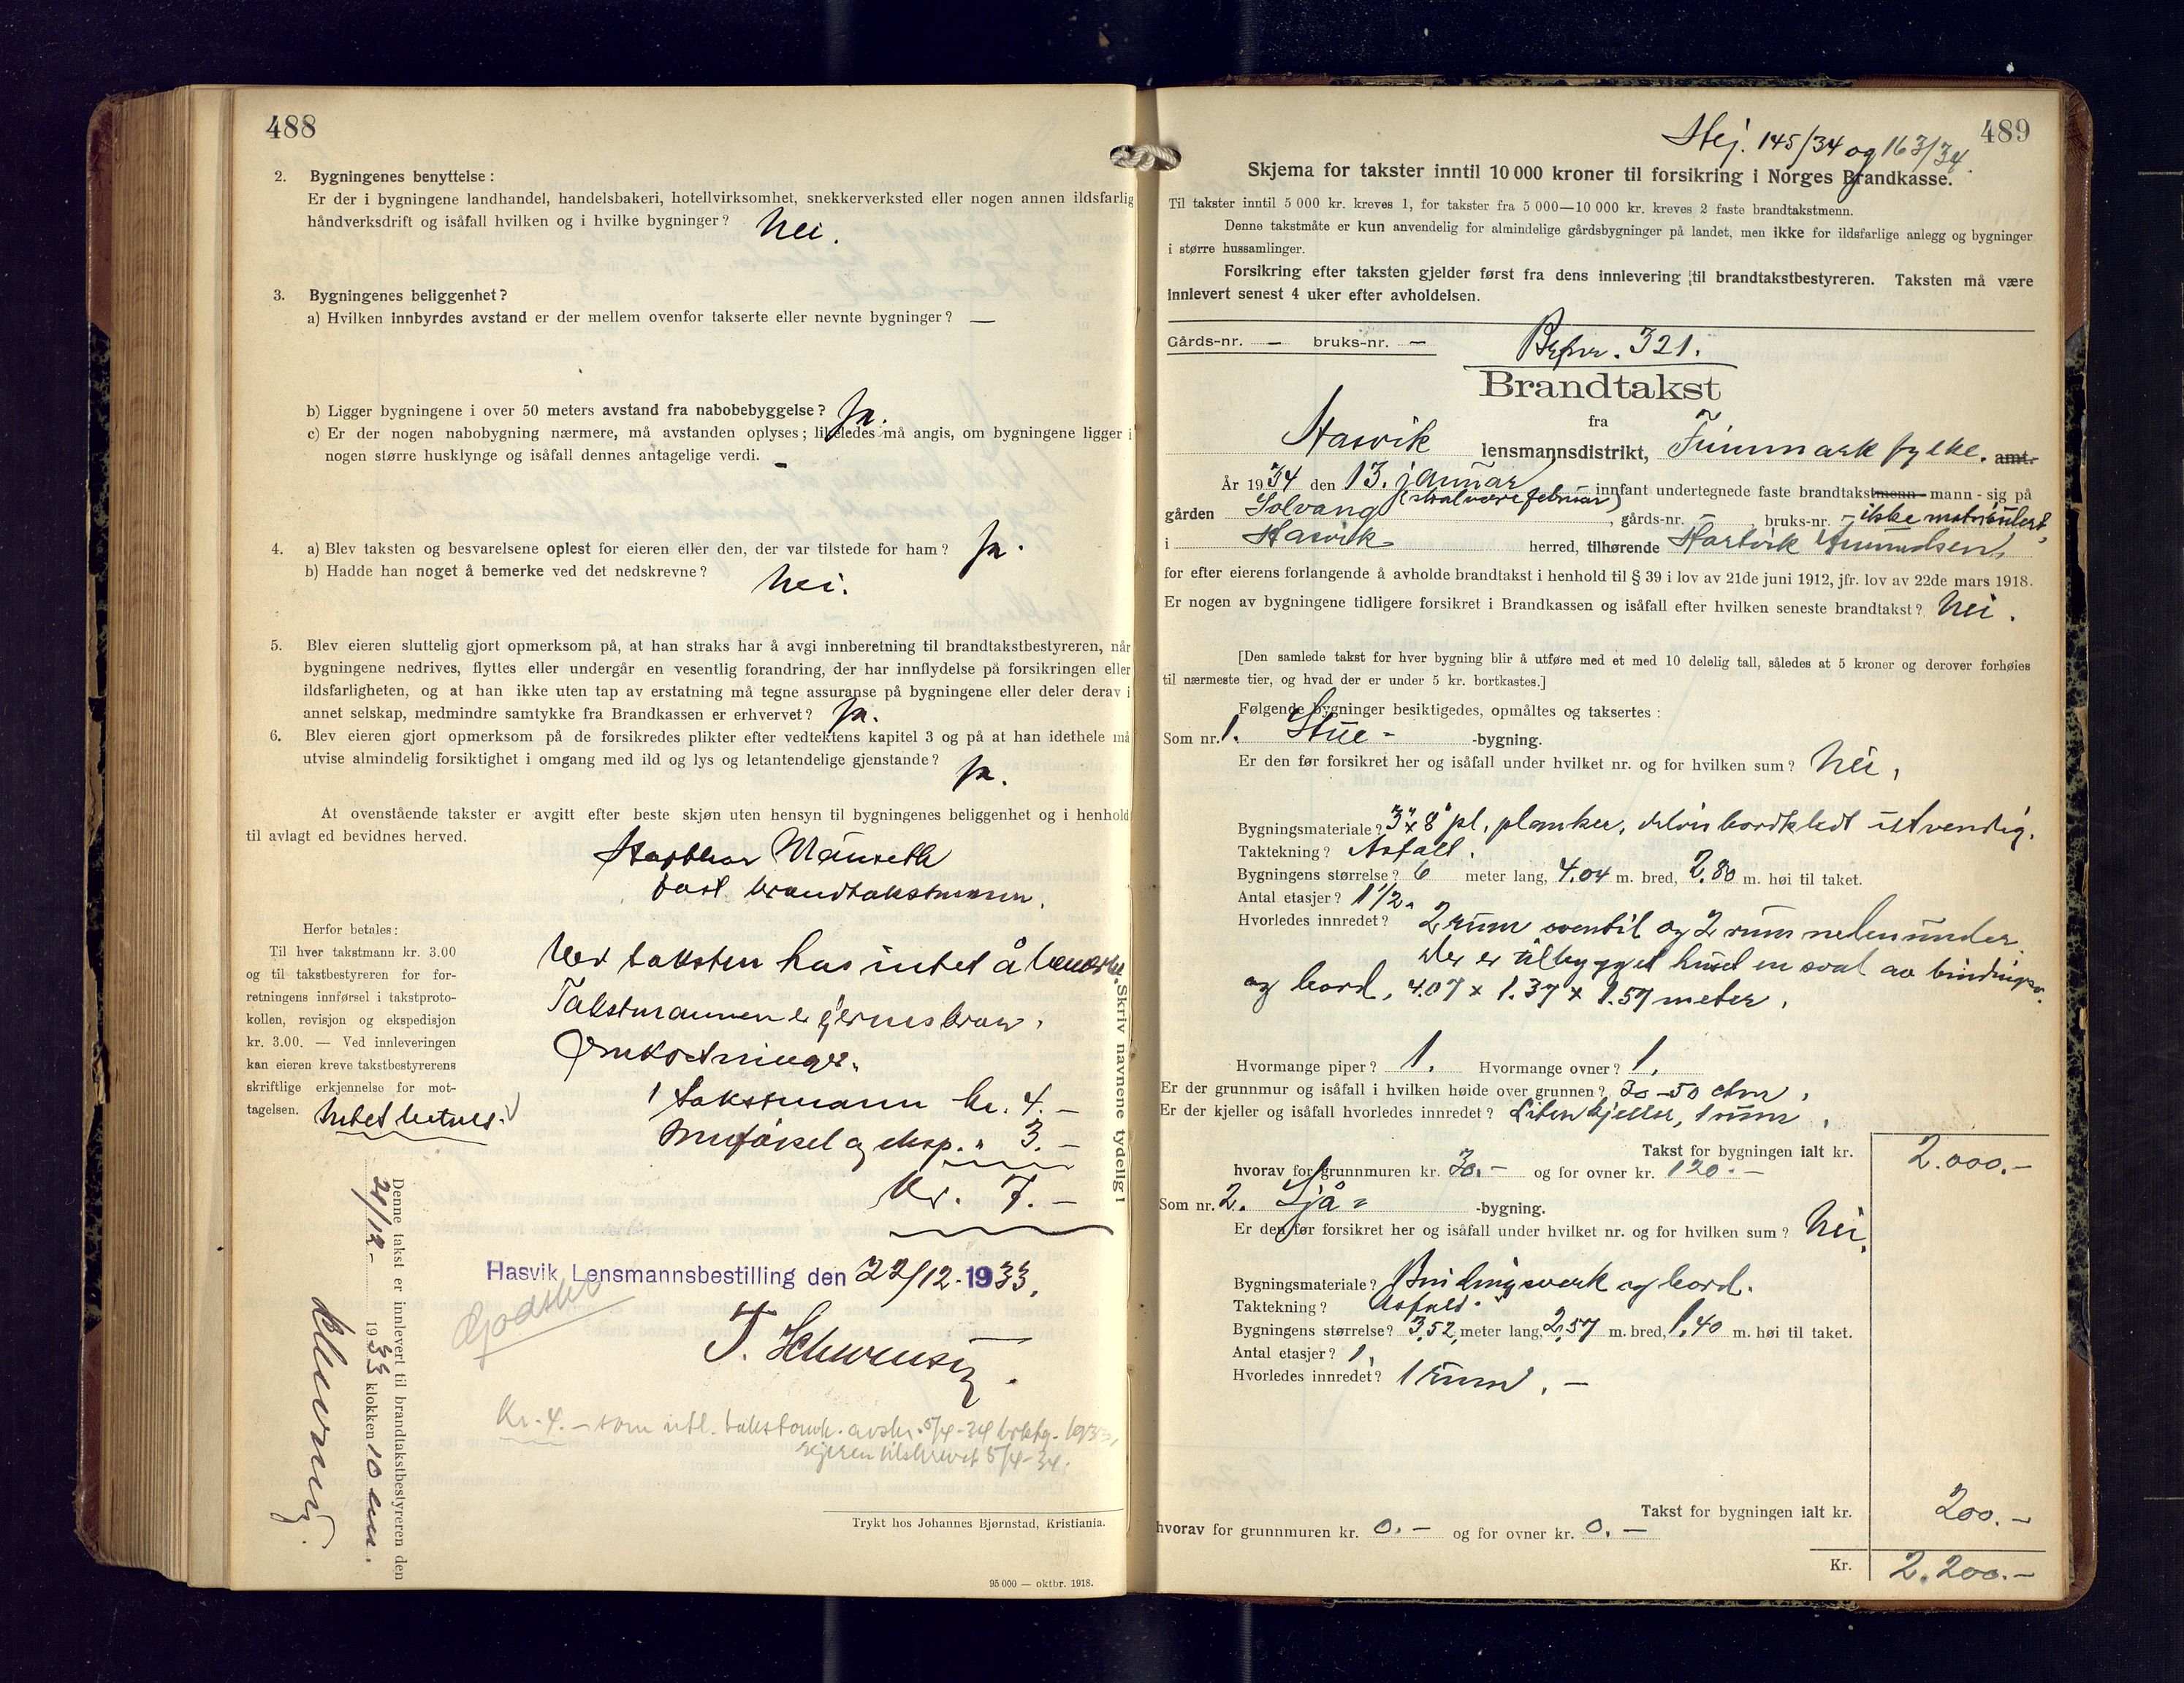 488
2. Bygningenes benyttelse:
Er der i bygningene landhandel, handelsbakeri, hotellvirksomhet, snekkerverksted eller nogen annen ildsfarlig
håndverksdrift og isåfall hvilken og i hvilke bygninger? Nei.
3. Bygningenes beliggenhet?
a) Hvilken innbyrdes avstand er der mellem ovenfor takserte eller nevnte bygninger? —
b) Ligger bygningene i over 50 meters avstand fra nabobebyggelse? Ja.
c) Er der nogen nabobygning nærmere, må avstanden oplyses; likeledes må angis, om bygningene ligger i
nogen større husklynge og isåfall dennes antagelige verdi. -
4. a) Blev taksten og besvarelsene oplest for eieren eller den, der var tilstede for ham? Ja.
b) Hadde han noget å bemerke ved det nedskrevne? Nei.
5. Blev eieren sluttelig gjort opmerksom på, at han straks har å avgi innberetning til brandtakstbestyreren, når
bygningene nedrives, flyttes eller undergår en vesentlig forandring, der har innflydelse på forsikringen eller
ildsfarligheten, og at han ikke uten tap av erstatning må tegne assuranse på bygningene eller deler derav i
annet selskap, medmindre samtykke fra Brandkassen er erhvervet? Ja.
6. Blev eieren gjort opmerksom på de forsikredes plikter efter vedtektens kapitel 3 og på at han idethele må
utvise almindelig forsiktighet i omgang med ild og lys og letantendelige gjenstande? Ja.
At ovenstående takster er avgitt efter beste skjøn uten hensyn til bygningenes beliggenhet og i henhold
til avlagt ed bevidnes herved.
fast brandtakstmann.
Herfor betales:
Til hver takstmann kr. 3.00
og til takstbestyreren for for-
retningens innførsel i takstproto-
kollen, revisjon og ekspedisjon
kr. 3.00. — Ved innleveringen
kan eieren kreve takstbestyrerens
skriftlige erkjennelse for mot-
tagelsen. Intet betalt.
Ved taksten har intet å bemerke.
Takstmannen er
Omkostninger.
1 takstmann kr. 4.-
Innførsel og eksp. " 3.-
Kr. 7.-
Hasvik Lensmannsbestilling den 22/12-1933.
Godtho
Kr. 4.- som utl. takstomk. avskr. 5/4-34
eieren tilskrevet 5/4-34.
Skriv navnene tydelig!
Denne takst er innlevert til brandtakstbestyreren den
21/12- 1933 klokken 10 em.
Trykt hos Johannes Bjørnstad, Kristiania.
95 000 — oktbr. 1918.
489
145/34 og 163/34.
Skjema for takster inntil 10 000 kroner til forsikring i Norges Brandkasse.
Til takster inntil 5 000 kr. kreves 1, for takster fra 5 000—10 000 kr. kreves 2 faste brandtakstmenn.
Denne takstmåte er kun anvendelig for almindelige gårdsbygninger på landet, men ikke for ildsfarlige anlegg og bygninger
i større hussamlinger.
Forsikring efter taksten gjelder først fra dens innlevering til brandtakstbestyreren. Taksten må være
innlevert senest 4 uker efter avholdelsen.
Gårds-nr. — bruks-nr. —
Brfnr. 321.
Brandtakst
fra
Hasvik lensmannsdistrikt, Finnmark fylke. amt.
År 1934 den 13. januar (skal være februar) innfant undertegnede faste brandtakstmenn - mann - sig på
gården Solvang, gårds-nr. — bruks-nr. — ikke matrikulert,
i Hasvik herred, tilhørende Hartvik Amundsen
for efter eierens forlangende å avholde brandtakst i henhold til § 39 i lov av 21de juni 1912, jfr. lov av 22de mars 1918.
Er nogen av bygningene tidligere forsikret i Brandkassen og isåfall efter hvilken seneste brandtakst? Nei.
[Den samlede takst for hver bygning blir å utføre med et med 10 delelig tall, således at 5 kroner og derover forhøies
til nærmeste tier, og hvad der er under 5 kr. bortkastes.]
Følgende bygninger besiktigedes, opmåltes og taksertes:
Som nr. 1. Stue- -bygning.
Er den før forsikret her og isåfall under hvilket nr. og for hvilken sum? Nei,
Bygningsmateriale? 3"x8" pl. planker, delvis bordkledt utvendig.
Taktekning? Asfalt.
Bygningens størrelse? 6 meter lang, 4.04 m. bred, 2.80 m. høi til taket.
Antal etasjer? 1 1/2.
Hvorledes innredet? 2 rum oventil og 2 rum nedenunder.
Der er tilbygget huset en sval av bindingsv.
og bord, 4.07 x 1.37 x 1.57 meter.
Hvormange piper? 1. Hvormange ovner? 1.
Er der grunnmur og isåfall i hvilken høide over grunnen? 30-50 ctm.
Er der kjeller og isåfall hvorledes innredet? Liten kjeller, 1 rum.
Takst for bygningen ialt kr. 2.000.-
hvorav for grunnmuren kr. 30.- og for ovner kr. 120.-
Som nr. 2. Sjå- -bygning.
Er den før forsikret her og isåfall under hvilket nr. og for hvilken sum? Nei.
Bygningsmateriale? Bindingsverk og bord.
Taktekning? Asfalt.
Bygningens størrelse? 3,52 meter lang, 2,57 m. bred, 1,40 m. høi til taket.
Antal etasjer? 1.
Hvorledes innredet? 1 rum. -
Takst for bygningen ialt kr. 200.-
hvorav for grunnmuren kr. 0.- og for ovner kr. 0.-
Kr. 2.200.-